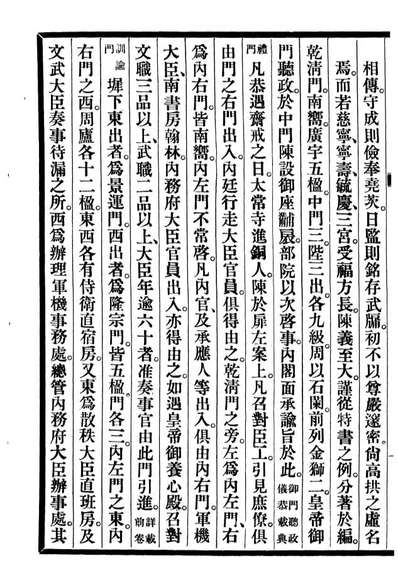 相傳守成則儉奉堯茨日監則銘存武牖初不以尊嚴邃密尙高拱之虛名
焉而若慈寧寧壽毓慶三宮受福方長陳義至大謹從特書之例分著於編
乾淸門南嚮廣宇五楹中門三陛三出各九級周以石闌前列金獅二皇帝御
門聽政於中門陳設御座黼扆部院以次啓事內閣面承諭旨於此御門聽政儀恭載典
禮門凡恭遇齋戒之日太常寺進銅人陳於扉左案上凡召對臣工引見庶僚俱
由門之右門出入內廷行走大臣官員俱得由之乾淸門之旁左爲內左門右
爲內右門皆南嚮內左門不常啓凡內官及承應人等出入俱由內右門軍機
大臣南書房翰林內務府大臣官員出入亦得由之如遇皇帝御養心殿召對
文職三品以上武職二品以上大臣年逾六十者准奏事官由此門引進詳載前卷
訓諭門墀下東出者爲景運門西出者爲隆宗門皆五楹門各三內左門之東內
右門之西周廬各十二楹東西各有侍衛直宿房又東爲散秩大臣直班房及
文武大臣奏事待漏之所西爲辦理軍機事務處總管內務府大臣辦事處其